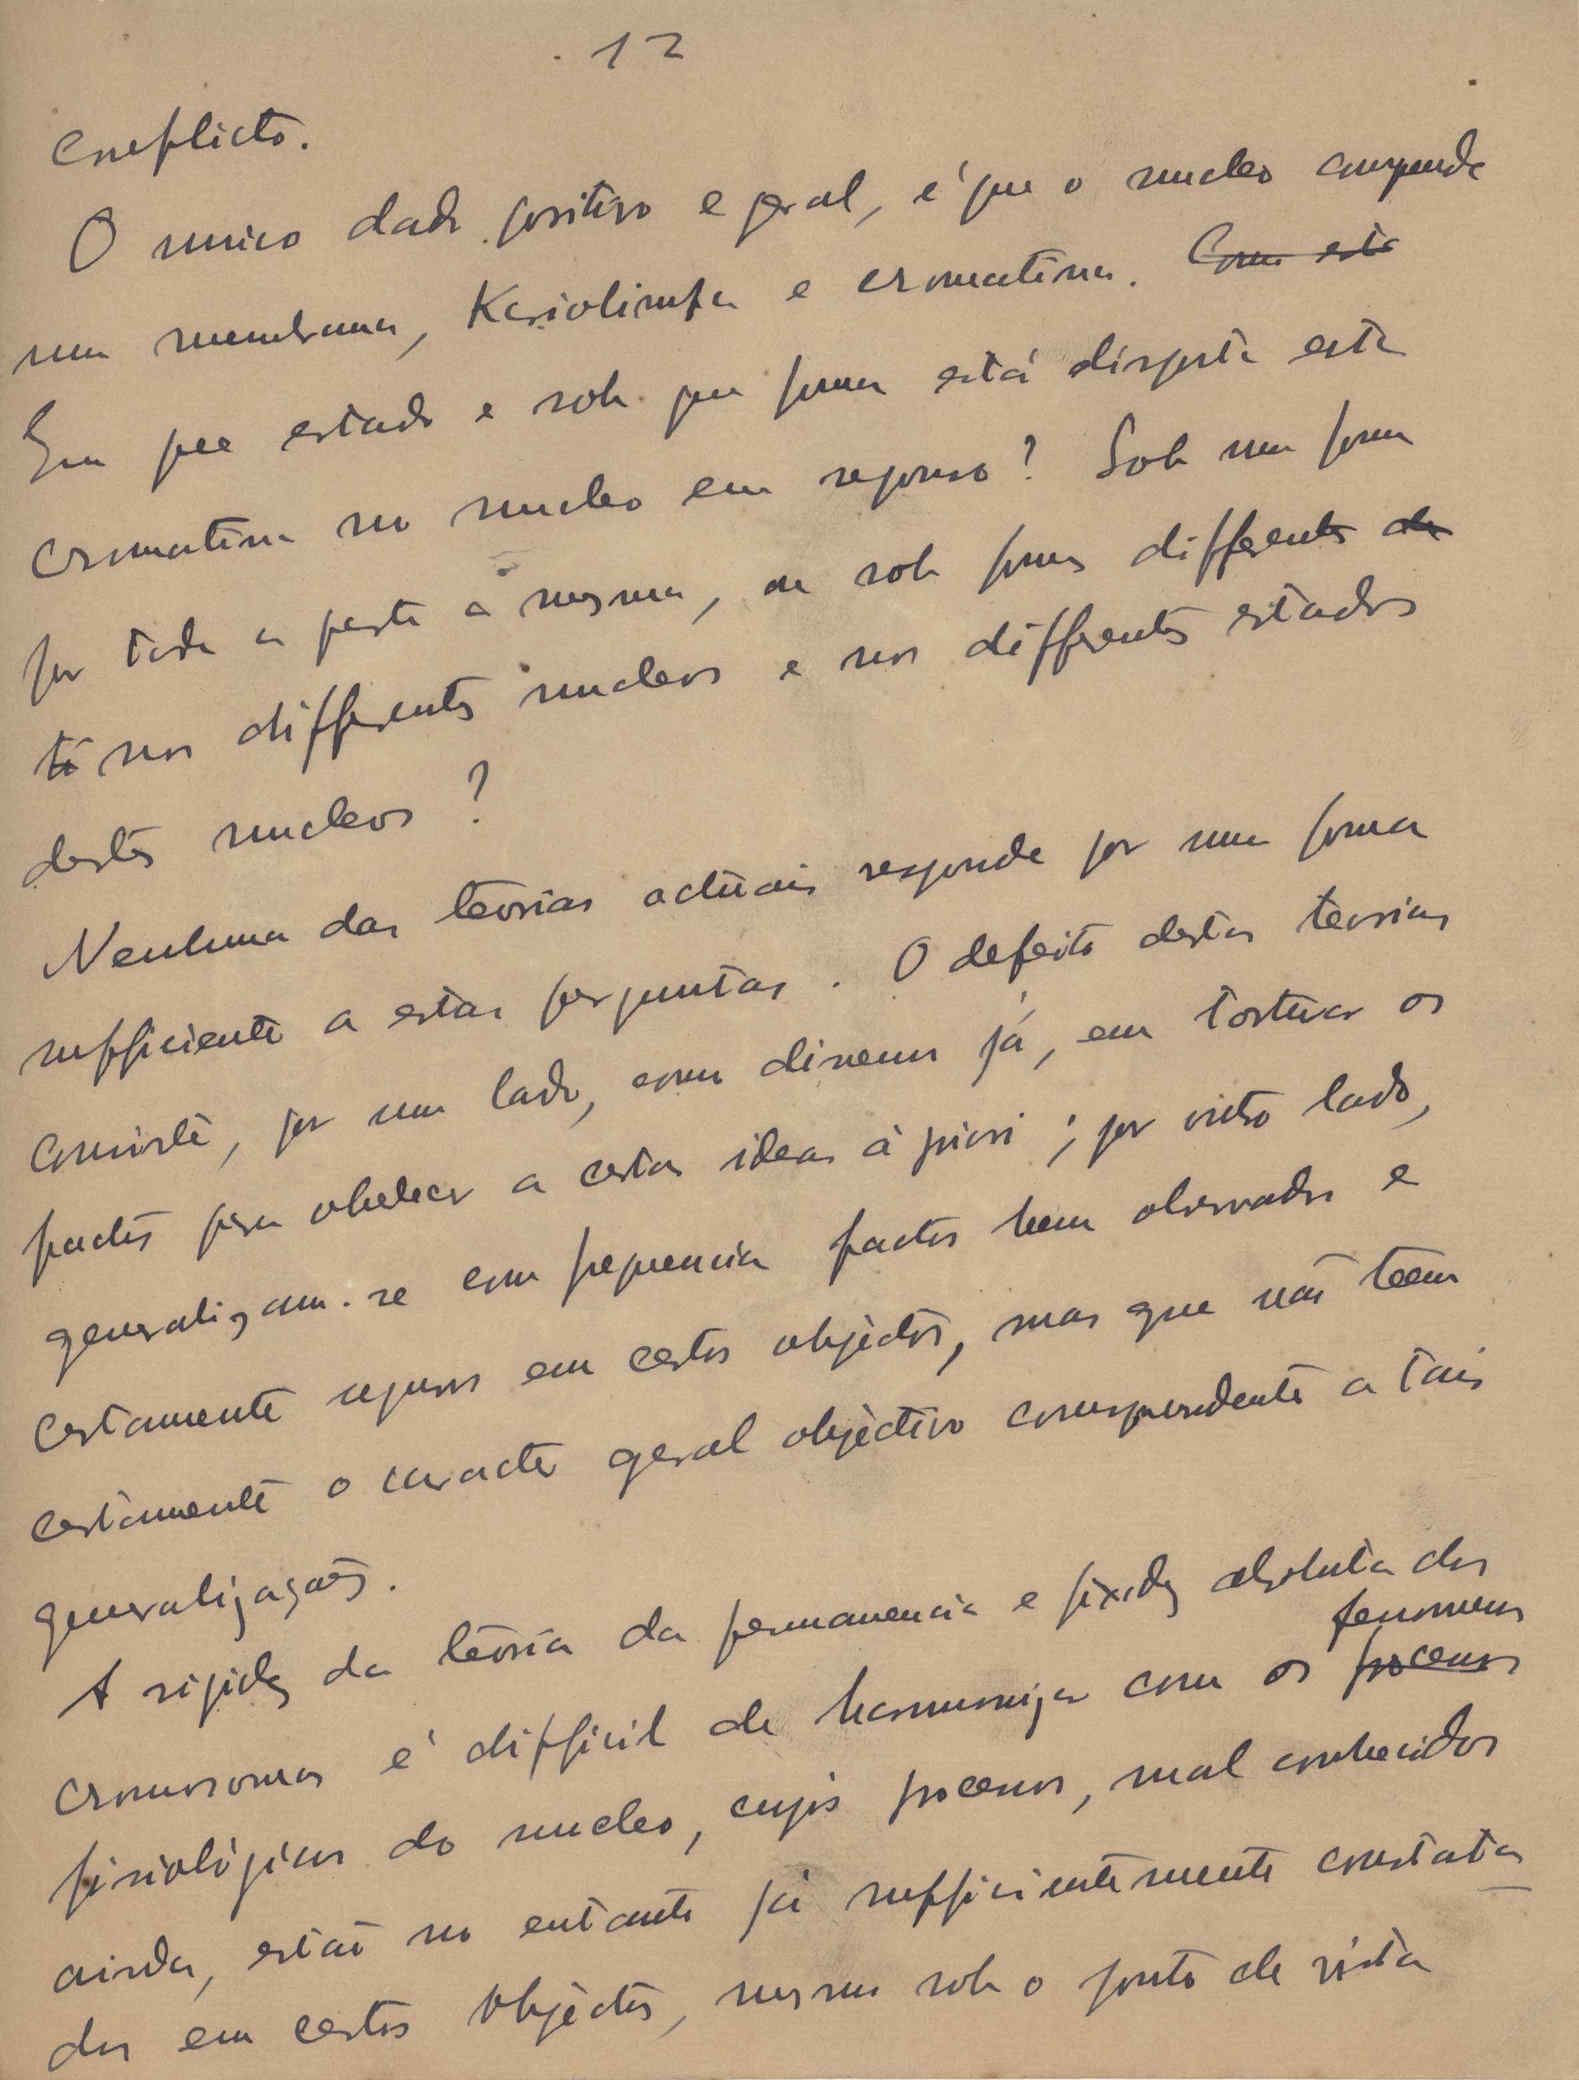 12
conflicto.
O unico dado positivo e geral, é que o nucleo comprende
uma membrana, Kariolimfa e cromatina. Com esta
Em que estado e sob que forma está disposta esta
cromatina no nucleo em repouso? Sob uma forma
por toda a parte a mesma, ou sob formas differentes de
tá nos differentes nucleos e nos differentes estados
destes nucleos?
Nenhuma das teorias actuais responde por uma forma
sufficiente a estas perguntas. O defeito destas teorias
consiste, por um lado, como dissemos já, em torturar os
factos para obedecer a certas ideas à priori; por outro lado,
generalizam-se com frequencia factos bem observados e
certamente seguros em certos objectos, mas que não teem
certamente o caracter geral objectivo correspondente a tais
generalizações.
A rigidez da teoria da permanencia e fixidez absoluta dos
fenomenos
cromosomas é difficil de harmonizar com os processos
fisiológicos do nucleo, cujos processos, mal conhecidos
ainda, estão no entanto já sufficientemente constata
dos em certos objectos, mesmo sob o ponto de vista